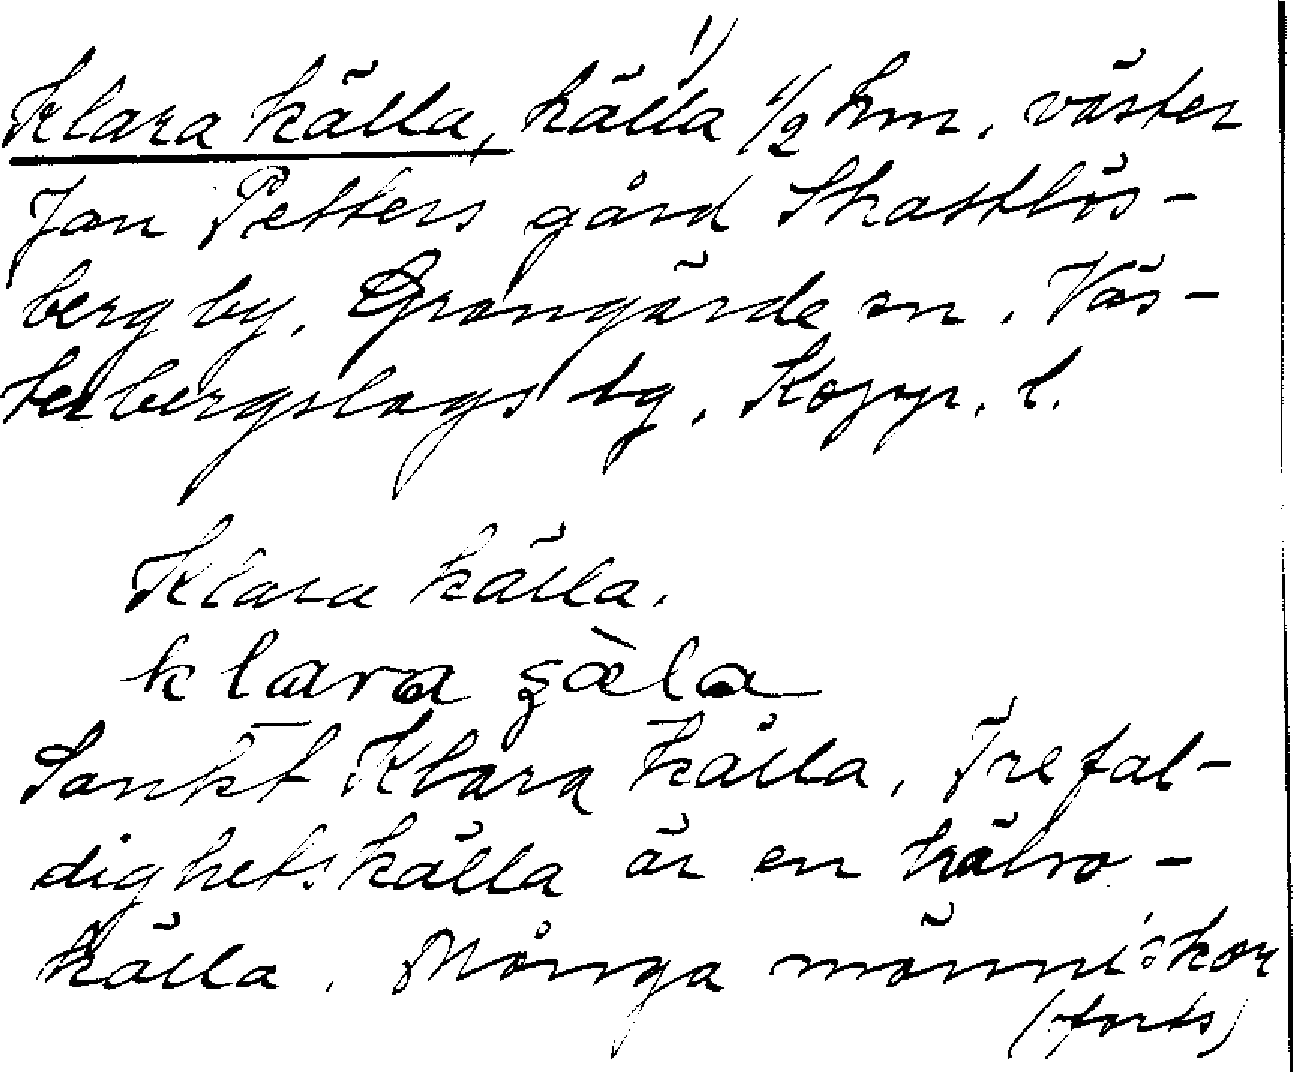 Klara källa, källa 1) 1/2 km. väster
Jan Petters gård Skattlös-
berg by, Grangärde sn. Väs-
terbergslags tg. Kopp. l.
Klara källa.
klara
Sankt Klara källa, Trefal-
dighetskälla är en hälso-
källa. Många människor
(forts)